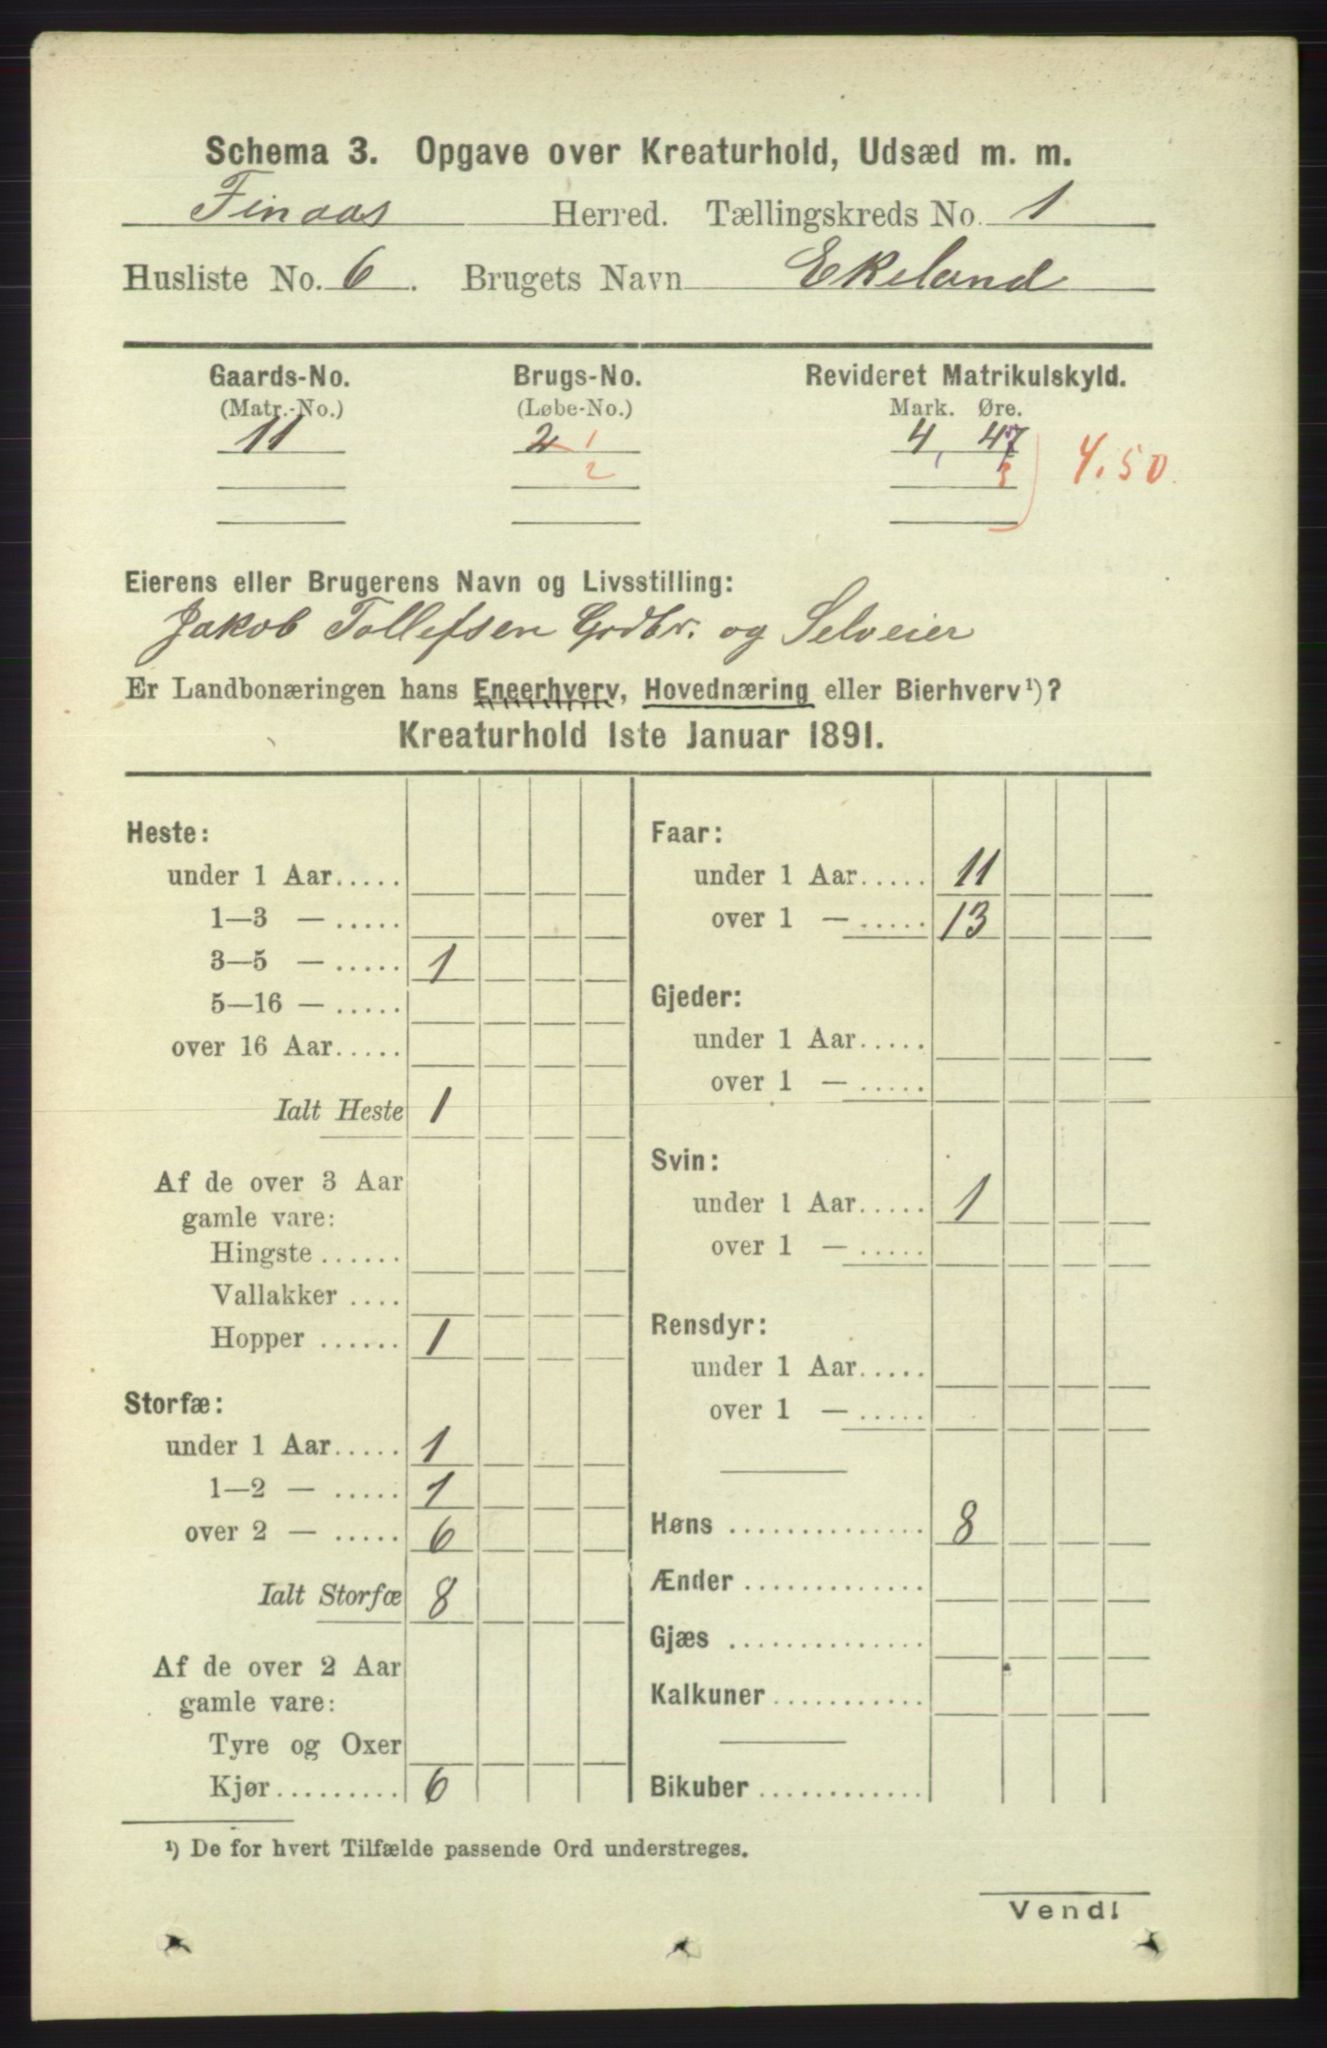 Schema 3. Opgave over Kreaturhold, Udsæd m. m.
Finaas Herred. Tællingskreds No. 1
Husliste No. 6. Brugets Navn Ekeland
Gaards-No. Brugs-No. Revideret Matrikulskyld.
(Matr.-No.) (Løbe-No.) Mark. Øre.
11 2 1 4, 47 4.50
2 3
Eierens eller Brugerens Navn og Livsstilling:
Jakob Tollefsen Grdbr. og Selveier
Er Landbonæringen hans Eneerhverv, Hovednæring eller Bierhverv¹)?
Kreaturhold 1ste Januar 1891.
Heste:
under 1 Aar.....
1—3 — .....
3—5 — ..... 1
5—16 — .....
over 16 Aar.....
Ialt Heste 1
Af de over 3 Aar
gamle vare:
Hingste ......
Vallakker ....
Hopper ...... 1
Storfæ:
under 1 Aar..... 1
1—2 — ..... 1
over 2 — ..... 6
Ialt Storfæ 8
Af de over 2 Aar
gamle vare:
Tyre og Oxer
Kjør......... 6
Faar:
under 1 Aar..... 11
over 1 — ..... 13
Gjeder:
under 1 Aar.....
over 1 — .....
Svin:
under 1 Aar..... 1
over 1 — .....
Rensdyr:
under 1 Aar.....
over 1 — .....
Høns .............. 8
Ænder .............
Gjæs ..............
Kalkuner...........
Bikuber............
¹) De for hvert Tilfælde passende Ord understreges.
Vend!